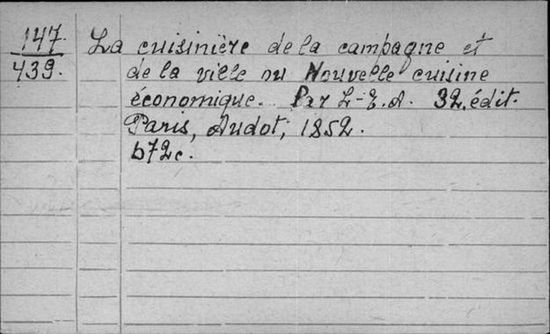 147.
439.
La cuisinière de la campagne et
de la ville ou Nouvelle cuisine
économique. Par L-E.A. 32. édit.
Paris, Audot, 1852.
672c.